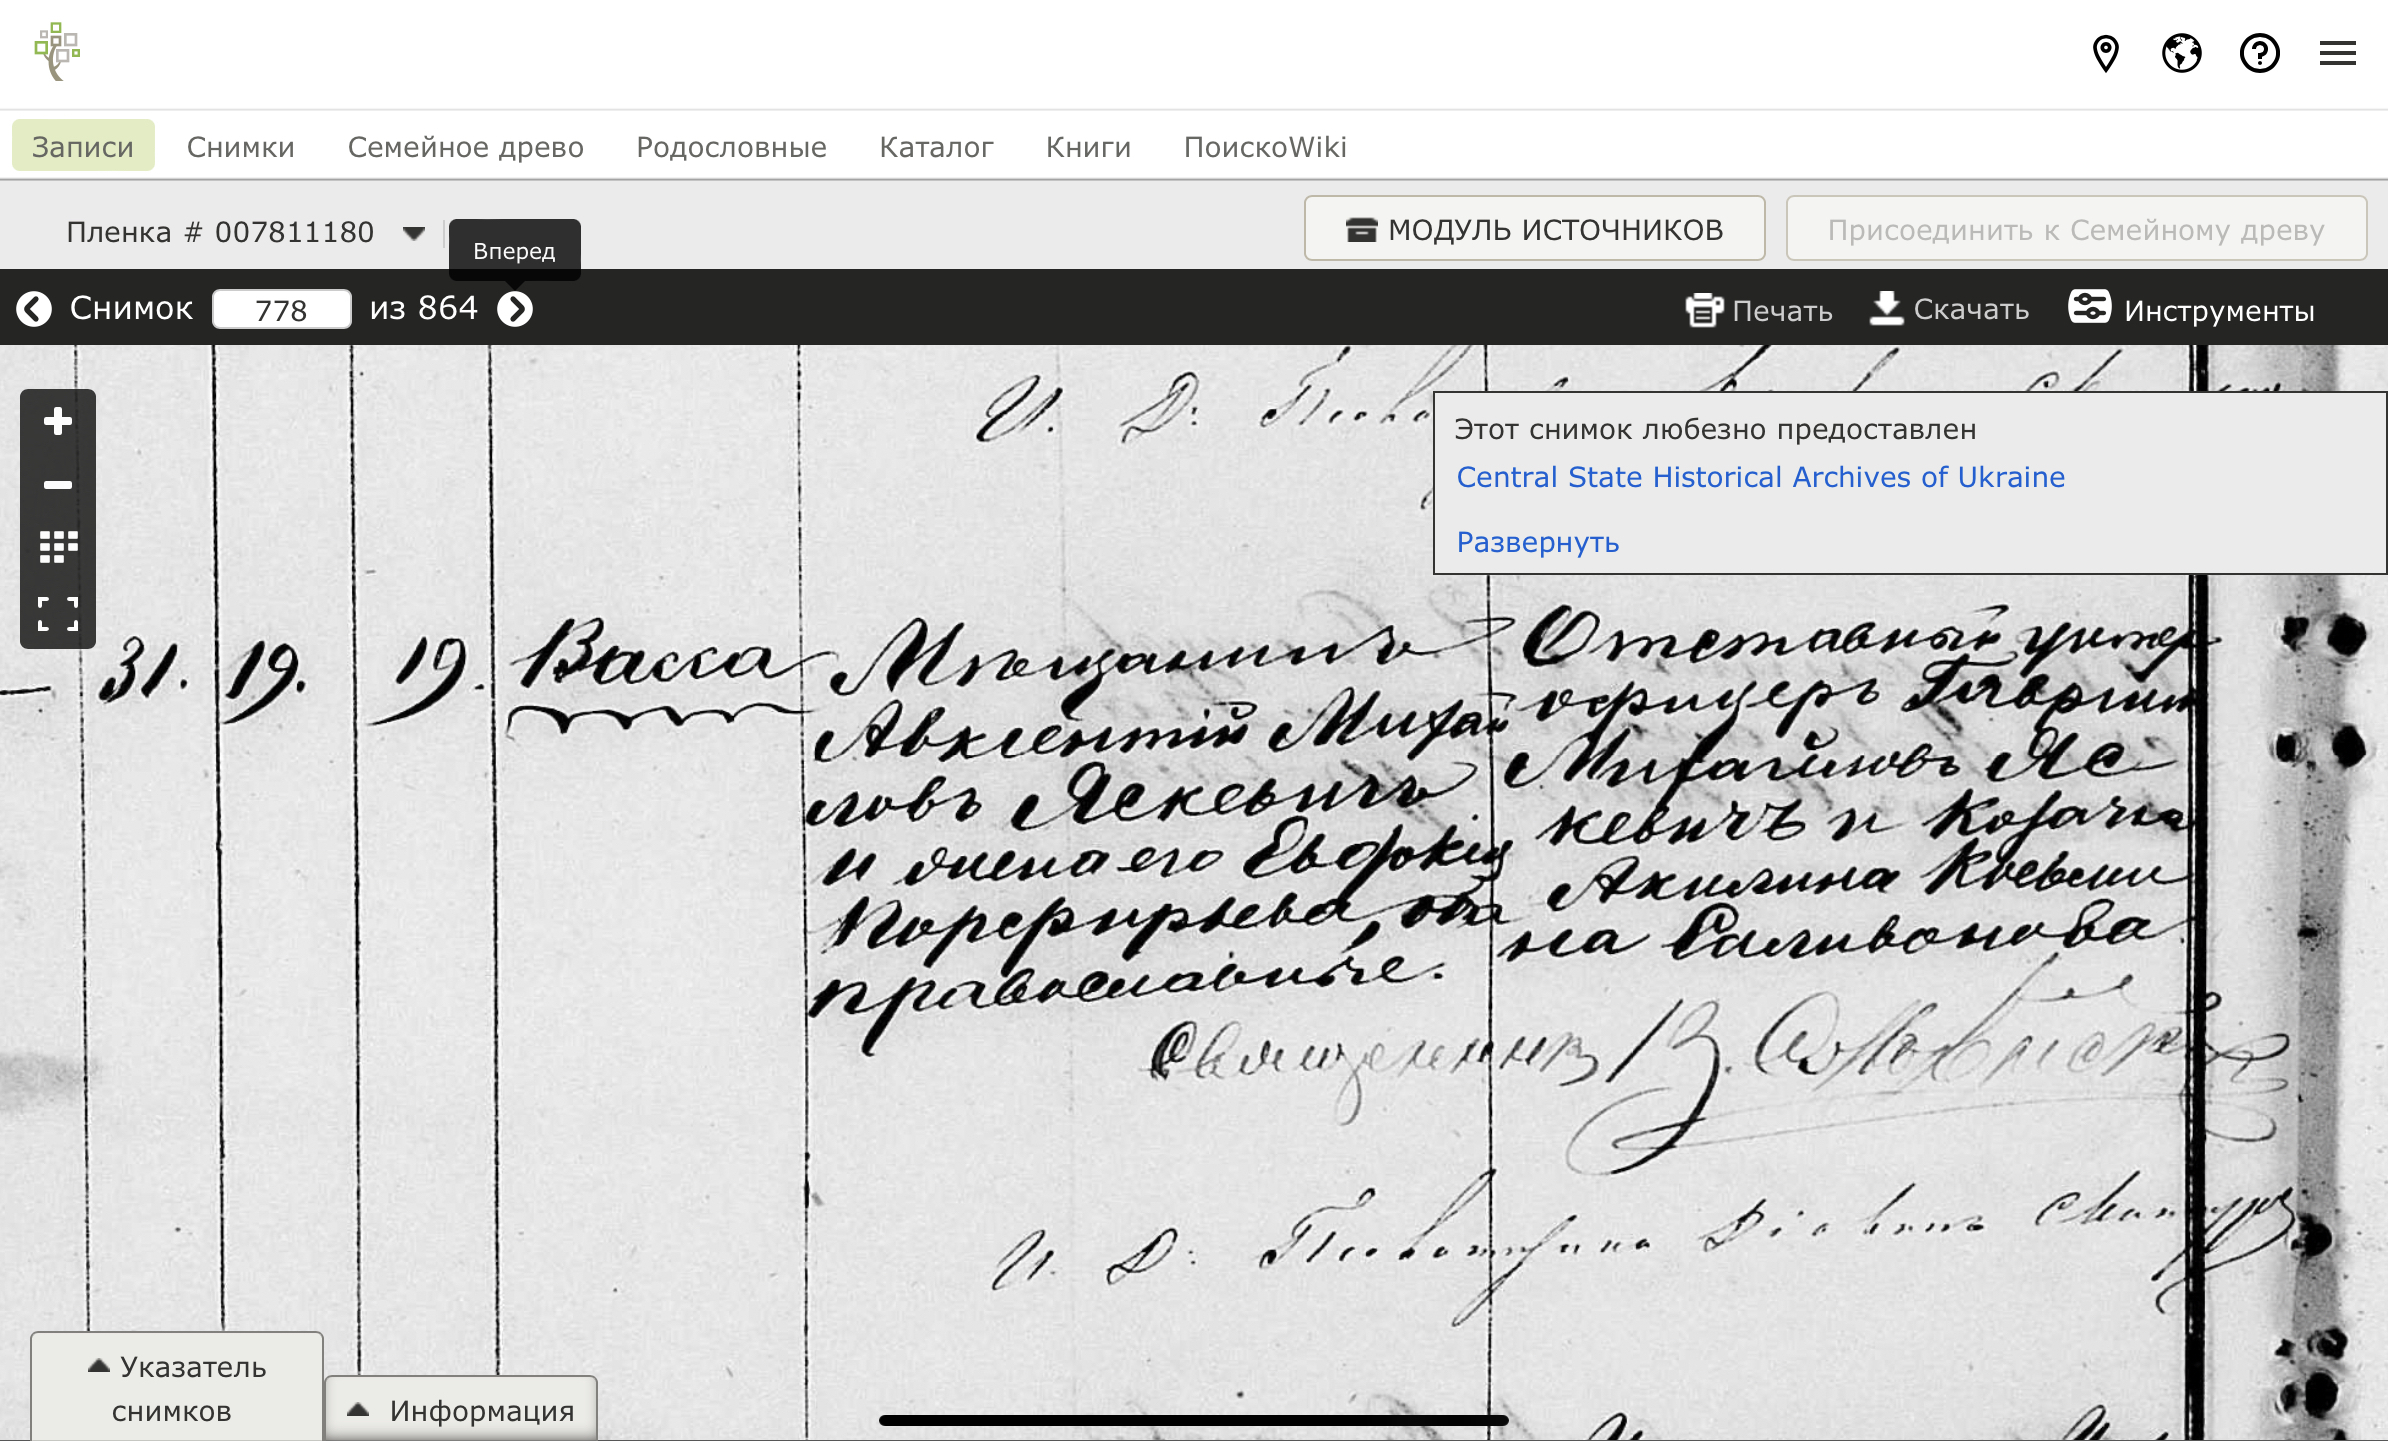 Записи Снимки Семейное древо Родословные Каталог Книги ПоискоWiki
Пленка # 007811180
Вперед
МОДУЛЬ ИСТОЧНИКОВ
Присоединить к Семейному древу
Снимок 778 из 864
Печать Скачать Инструменты
И. Д:
Этот снимок любезно предоставлен
Central State Historical Archives of Ukraine
Развернуть
31. 19. 19. Васса
Мѣщанинъ
Авксентій Михай
ловъ Яскевичъ
и жена его
Порфирьева, оба
православные.
Отставный унтер
офицеръ Гавріил
Михайловъ Яс
кевичъ и Козачка
Акилина Косьми
на Саливонова
Священник В.
И. Д:
Указатель
снимков
Информация